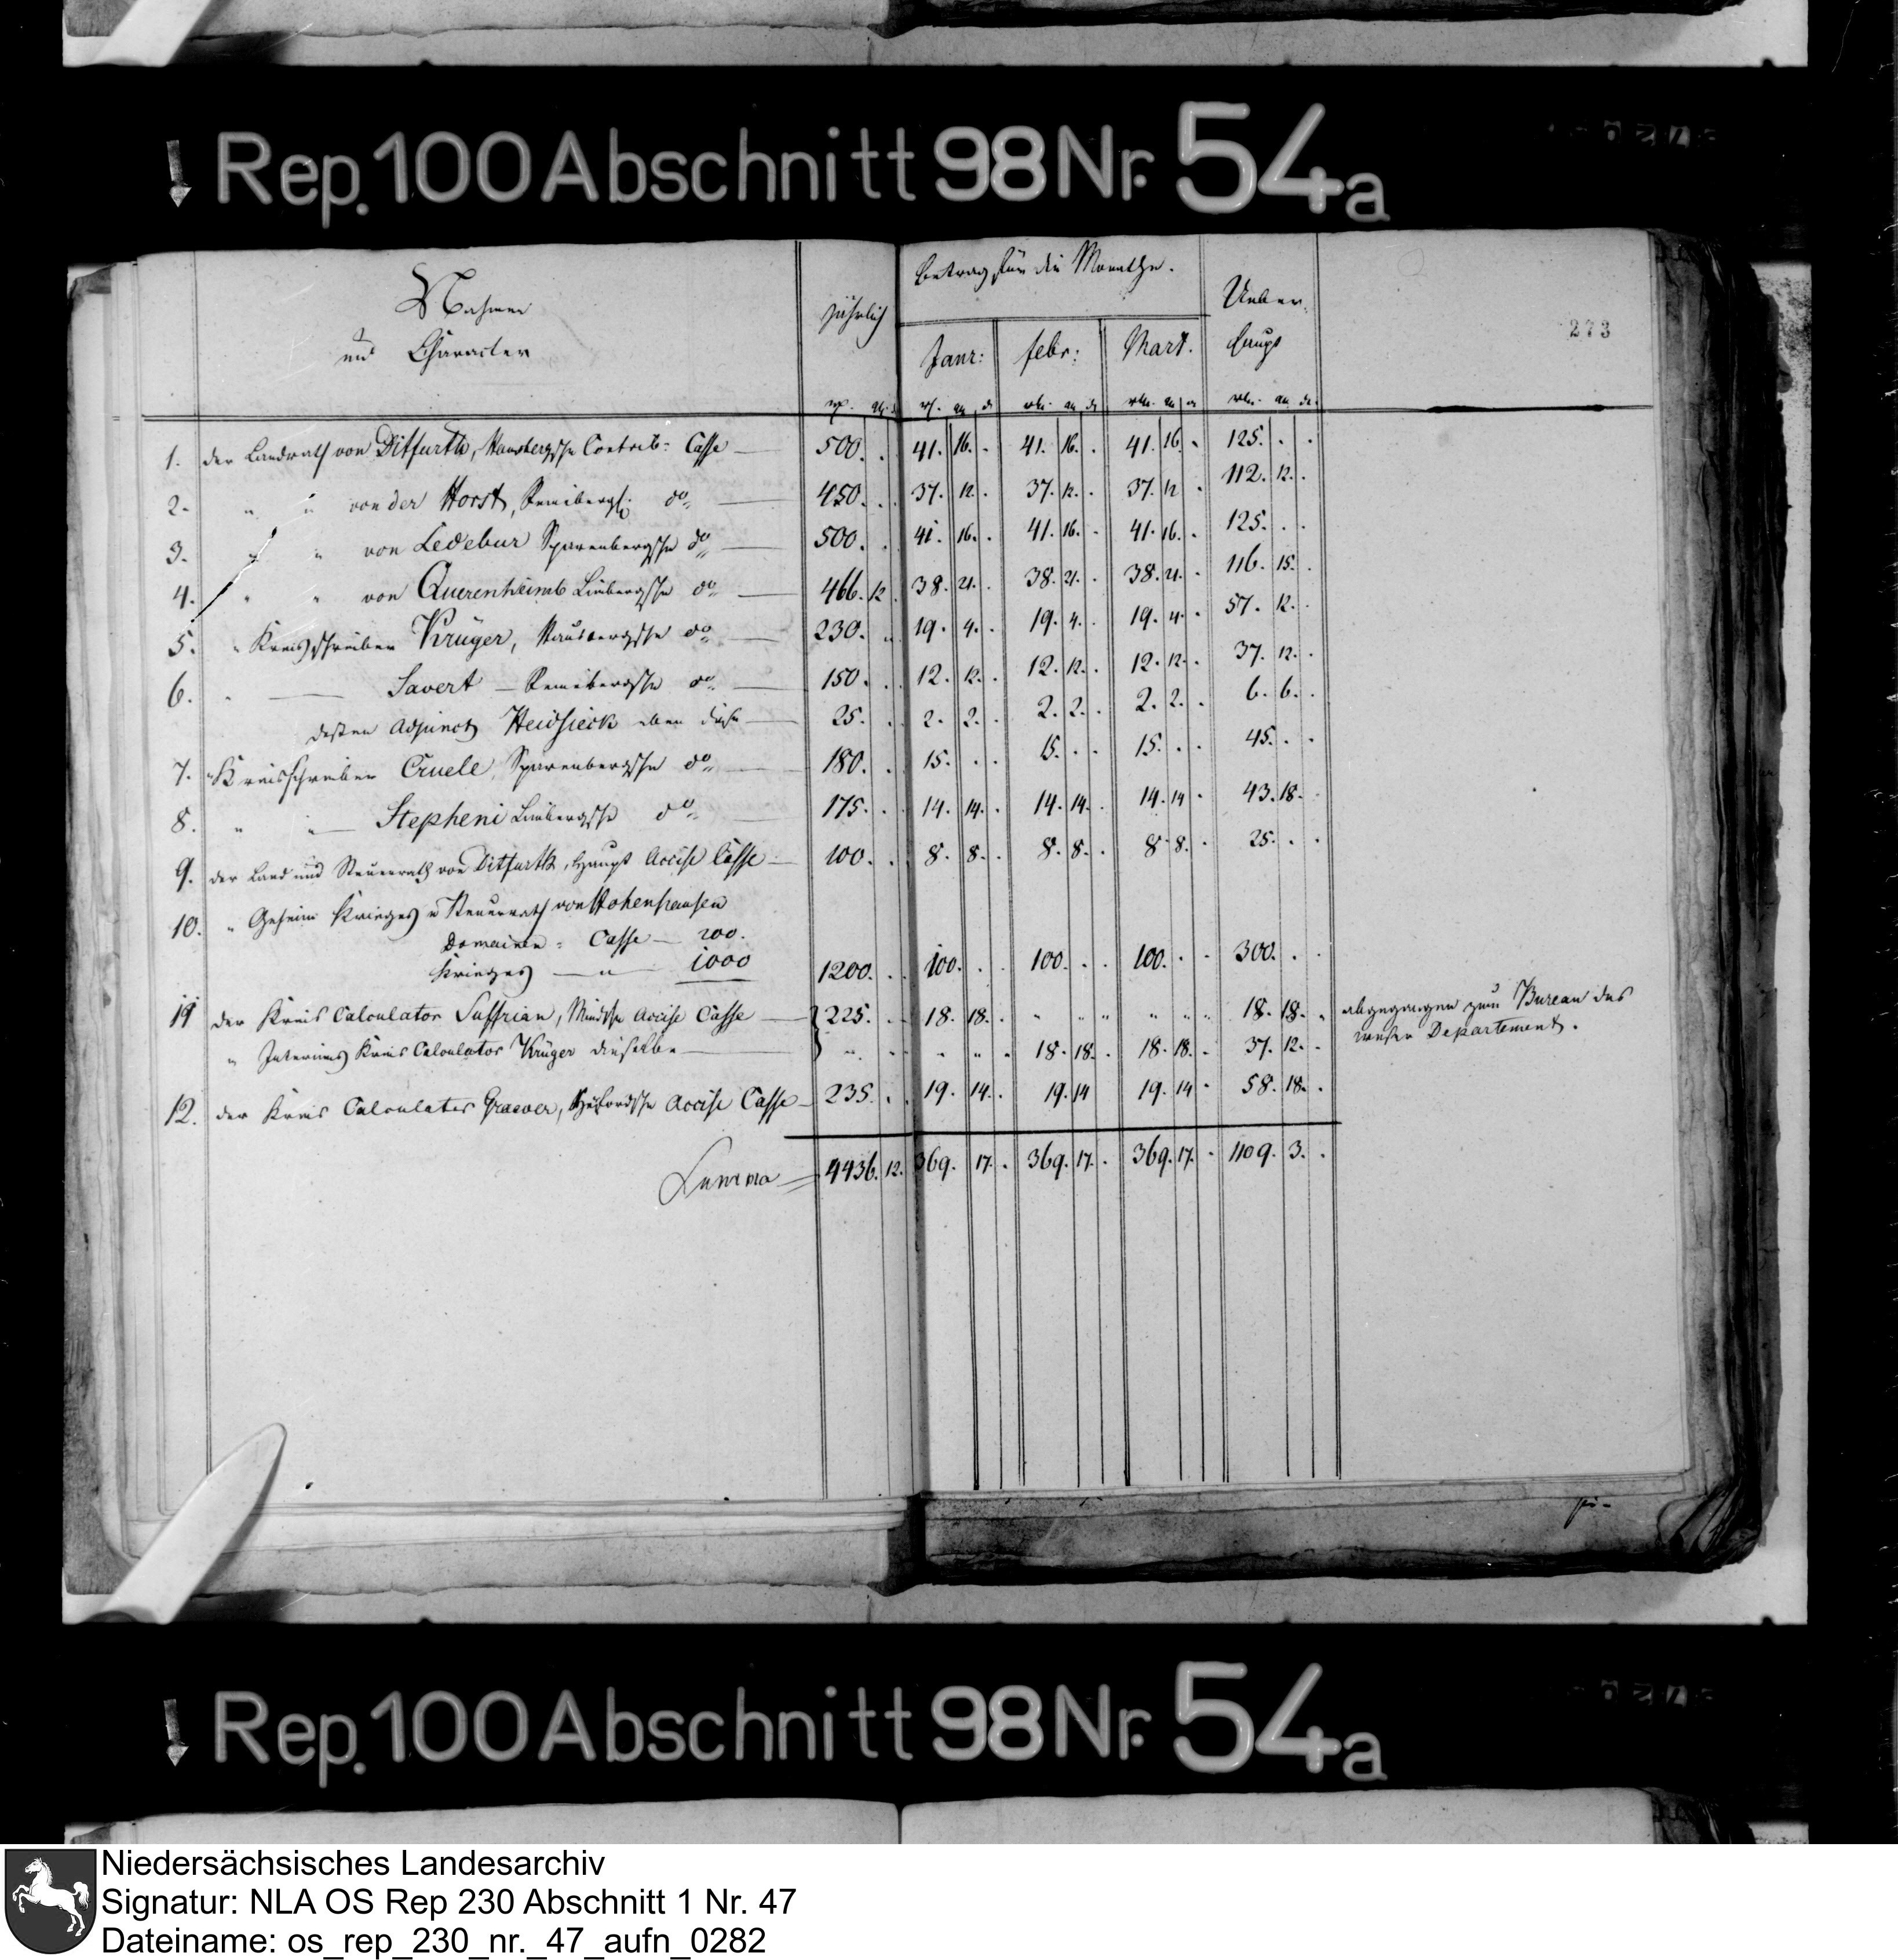 Rep. 100 Abschnitt 98 Nr. 54a
Nahmen
und Character
jährlich
Betrag für die Monathe.
Janr: Febr: Mart.
Ueber-
haupt
273
1. der Landrath von Ditfurth, Hausbergsche Contrib: Casse 500. . 41. 16. . 41. 16. . 41. 16. . 125. . .
2. " " von der Horst, Reineberg. do 450. . 37. 12. . 37. 12. . 37. 12 . 112. 12. .
3. " " von Ledebur Sparenbergsche do 500. . 41. 16. . 41. 16. . 41. 16. . 125. . .
4. " " von Querenheimb Limbergsche do 466. 12. 38. 21. . 38. 21. . 38. 21. . 116. 15. .
5. " Kreisschreiber Krüger, Hausbergsche do 230. " 19. 4. . 19. 4. . 19. 4. . 57. 12. .
6. " Savert Reinebergsche do 150. . 12. 12. . 12. 12. . 12. 12. . 37. 12. .
dessen Adjunct Heidsieck eben diese 25. . 2. 2. . 2. 2. . 2. 2. . 6. 6. .
7. " Kreisschreiber Cruele, Sparenbergsche do 180. . 15. . . 15. . . 15. . . 45. . .
8. " " Stepheni Limbergsche do 175. . 14. 14. . 14. 14. . 14. 14 . 43. 18. .
9. der Land und Steuerrath von Ditfurth, Haupt Accise Casse 100. . 8. 8. . 8. 8. . 8. 8. . 25. . .
10. " Geheime Krieges u Steuerrath von Hohenhausen
Domainen = Casse — 200.
Krieges — " — 1000 1200. . 100. . . 100. . . 100. . . 300. . .
11 der Kreis Calculator Suffrian, Mindsche Accise Casse 225. . 18. 18. . " " " " " " 18. 18. . abgegangen zum Bureau des
Weser Departements.
" Interims Kreis Calculator Krüger dieselbe " " " " . 18. 18. . 18. 18. . 37. 12. .
12. der Kreis Calculator Graever, Herfordsche Accise Casse 235. . 19. 14. . 19. 14 19. 14 . 58. 18. .
Summa 4436. 12. 369. 17. . 369. 17. . 369. 17. . 1109. 3. .
Rep. 100 Abschnitt 98 Nr. 54a
Niedersächsisches Landesarchiv
Signatur: NLA OS Rep 230 Abschnitt 1 Nr. 47
Dateiname: os_rep_230_nr._47_aufn_0282